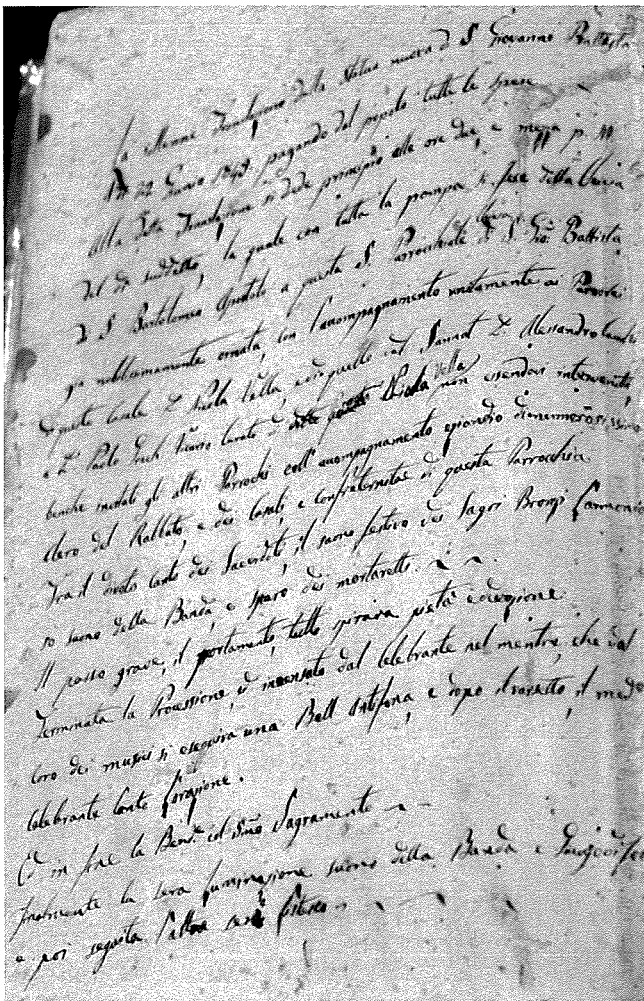 La Solenne Translazione della Statua nuova di S. Giovanni Battista
22 Giugno 1845 pagando del popolo tutte le spese
Alla detta Translazione si diede principio alle ore due, e mezza p. M
del dì suddetto, la quale con tutta la pompa si fece dalla Chiesa
di S. Bartolomeo Apostolo a questa Parrocchiale Chiesa di S. Gio: Battista
già nobilmente ornata, con l'accompagnamento unitamente ai Parrochi
di questo Casale D. Valla, e di quello del D. Alessandro
e D. Paolo Curato non essendovi intervenuti,
benche invitati gli altri Parrochi coll' accompagnamento eziandio di numerosissimo
Clero del Rabbato, e dei Casali, e confraternite di questa Parrocchia
Tra il divoto canto dei Sacerdoti, il suono festivo dei Sagri Bronzi l'armonio
so suono della Banda, e sparo dei mortaretti
Il passo grave, il portamento, tutto spirava pietà e divozione
Terminata la Processione, ed incensato dal Celebrante nel mentre, che dal
Coro dei musici si eseguiva una Bell' Antifona, e dopo il varsetto, il med.o
Celebrante cantò l'orazione.
Ed in fine la Ben.e col S.mo Sagramento
finalmente la sera suono della Banda e
e poi seguita l'altra